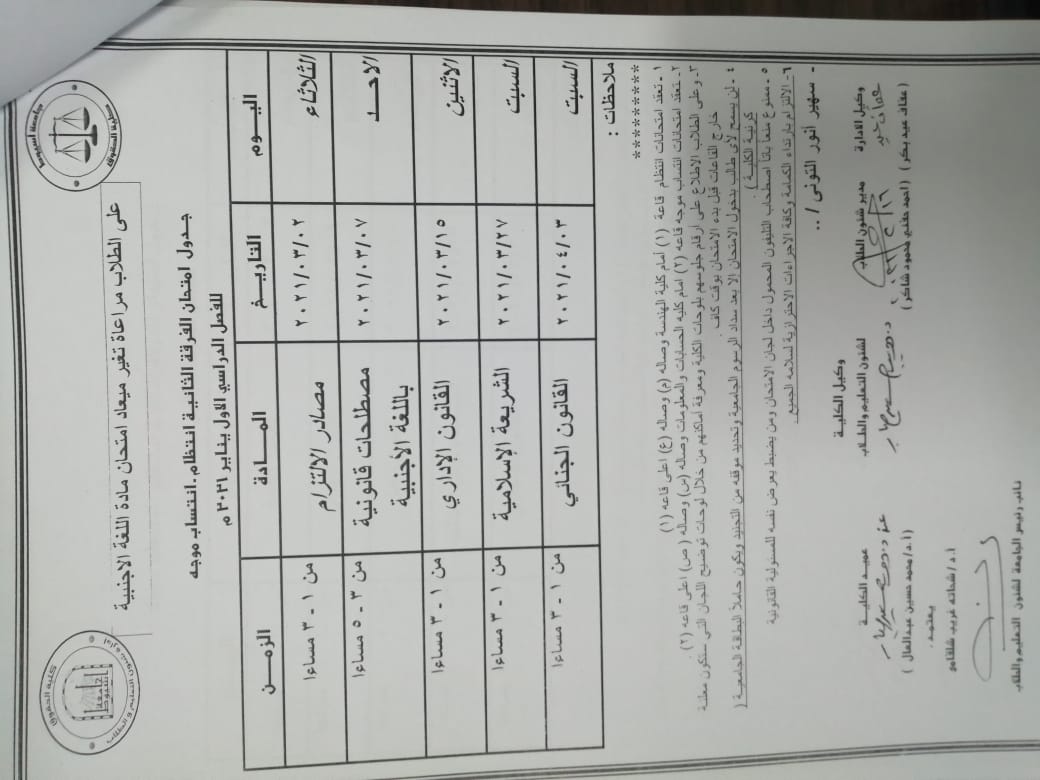 جامعة أسيوط
كلية الحقوق
كلية الحقوق
جامعة أسيوط
إدارة شئون التعليم والطلاب
على الطلاب مراعاة تغير ميعاد امتحان مادة اللغة الاجنبية
جدول امتحان الفرقة الثانية انتظام - انتساب موجه
للفصل الدراسي الاول يناير ٢٠٢١ م
اليــوم التاريــخ المــادة الزمــن
الثلاثاء ٢٠٢١/٠٣/٠٢ مصادر الالتزام من ١ - ٣ مساءا
الاحــد ٢٠٢١/٠٣/٠٧ مصطلحات قانونية باللغة الأجنبية من ٣ - ٥ مساءا
الاثنين ٢٠٢١/٠٣/١٥ القانون الإداري من ١ - ٣ مساءا
السبت ٢٠٢١/٠٣/٢٧ الشريعة الإسلامية من ١ - ٣ مساءا
السبت ٢٠٢١/٠٤/٠٣ القانون الجنائي من ١ - ٣ مساءا
ملاحظات :
**********
١ - تعقد امتحانات انتظام قاعة (١) أمام كلية الهندسة وصاله (م) وصاله (ع) اعلى قاعه (١)
٢- تعقد امتحانات انتساب موجه قاعه (٢) امام كليه الحسابات والمعلومات وصاله (س) وصاله (ص) اعلى قاعه (٢)
٣- وعلى الطلاب الاطلاع على ارقام جلوسهم بلوحات الكلية ومعرفة أماكنهم من خلال لوحات توضيح اللجان التى ستكون معلنة
خارج القاعات قبل بدء الامتحان بوقت كاف.
٤ - لن يسمح لأى طالب بدخول الامتحان الا بعد سداد الرسوم الجامعية وتحديد موقفه من التجنيد ويكون حاملا البطاقة الجامعيـة (
كرنية الكلية )
٥ - ممنوع منعا باتا اصطحاب التليفون المحمول داخل لجان الامتحان ومن يضبط يعرض نفسه للمسئولية القانونية
٦- الالتزام بارتداء الكمامة وكافة الاجراءات الاحترازية لسلامه الجميع.
- سهير انور التونى / ..
وكيل الادارة مدير شئون الطلاب
وكيل الكلية
لشئون التعليم والطلاب
عميد الكليــة
(عفاف عبد بكر) (احمد حلمى محمود شاكر)
(ا.د/محمد حسين عبدالعال )
يعتمد.
ا.د/شحاته غريب شلقامى
نائب رئيس الجامعة لشئون التعليم والطلاب